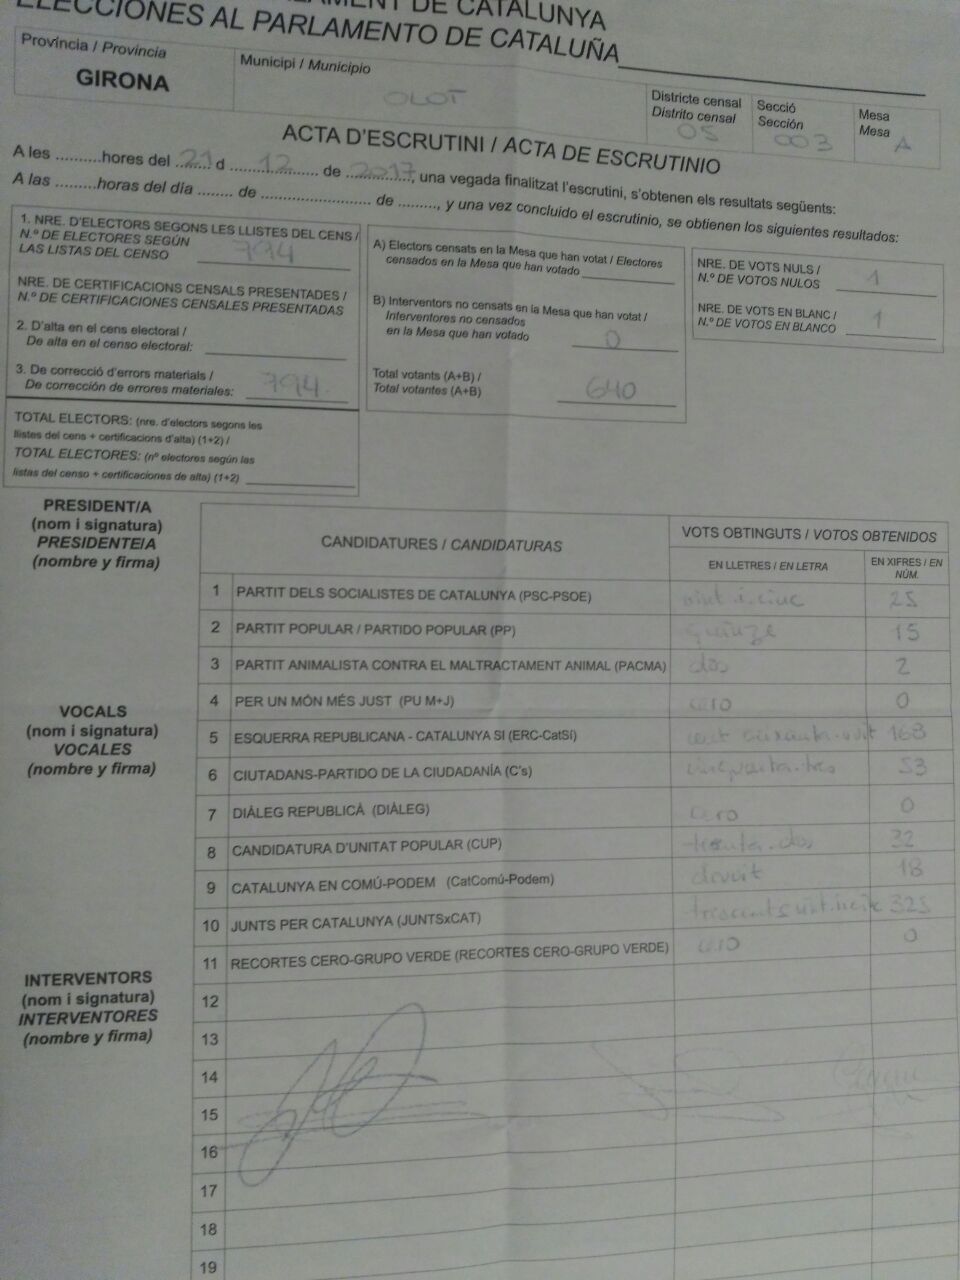 PARLAMENT DE CATALUNYA
ELECCIONES AL PARLAMENTO DE CATALUÑA
Província / Provincia
GIRONA
Municipi / Municipio
OLOT
Districte censal
Distrito censal
05
Secció
Sección
003
Mesa
Mesa
A
ACTA D'ESCRUTINI / ACTA DE ESCRUTINIO
A les ..........hores del ..21.. d ....12.... de ..2017.., una vegada finalitzat l'escrutini, s'obtenen els resultats següents:
A las .........horas del día ........ de ......................... de ........., y una vez concluido el escrutinio, se obtienen los siguientes resultados:
1. NRE. D'ELECTORS SEGONS LES LLISTES DEL CENS /
N.º DE ELECTORES SEGÚN
LAS LISTAS DEL CENSO 794
NRE. DE CERTIFICACIONS CENSALS PRESENTADES /
N.º DE CERTIFICACIONES CENSALES PRESENTADAS
2. D'alta en el cens electoral /
De alta en el censo electoral:
3. De correcció d'errors materials /
De corrección de errores materiales: 794
TOTAL ELECTORS: (nre. d'electors segons les
llistes del cens + certificacions d'alta) (1+2) /
TOTAL ELECTORES: (nº electores según las
listas del censo + certificaciones de alta) (1+2)
A) Electors censats en la Mesa que han votat / Electores
censados en la Mesa que han votado
B) Interventors no censats en la Mesa que han votat /
Interventores no censados
en la Mesa que han votado 0
Total votants (A+B) /
Total votantes (A+B) 640
NRE. DE VOTS NULS /
N.º DE VOTOS NULOS 1
NRE. DE VOTS EN BLANC /
N.º DE VOTOS EN BLANCO 1
PRESIDENT/A
(nom i signatura)
PRESIDENTE/A
(nombre y firma)
VOCALS
(nom i signatura)
VOCALES
(nombre y firma)
INTERVENTORS
(nom i signatura)
INTERVENTORES
(nombre y firma)
CANDIDATURES / CANDIDATURAS
VOTS OBTINGUTS / VOTOS OBTENIDOS
EN LLETRES / EN LETRA
EN XIFRES / EN
NÚM.
1 PARTIT DELS SOCIALISTES DE CATALUNYA (PSC-PSOE) vint-i-cinc 25
2 PARTIT POPULAR / PARTIDO POPULAR (PP) quinze 15
3 PARTIT ANIMALISTA CONTRA EL MALTRACTAMENT ANIMAL (PACMA) dos 2
4 PER UN MÓN MÉS JUST (PU M+J) cero 0
5 ESQUERRA REPUBLICANA - CATALUNYA SI (ERC-CatSí) 168
6 CIUTADANS-PARTIDO DE LA CIUDADANÍA (C's) cinquanta-tres 53
7 DIÀLEG REPUBLICÀ (DIÀLEG) cero 0
8 CANDIDATURA D'UNITAT POPULAR (CUP) trenta-dos 32
9 CATALUNYA EN COMÚ-PODEM (CatComú-Podem) divuit 18
10 JUNTS PER CATALUNYA (JUNTSxCAT) 325
11 RECORTES CERO-GRUPO VERDE (RECORTES CERO-GRUPO VERDE) cero 0
12
13
14
15
16
17
18
19